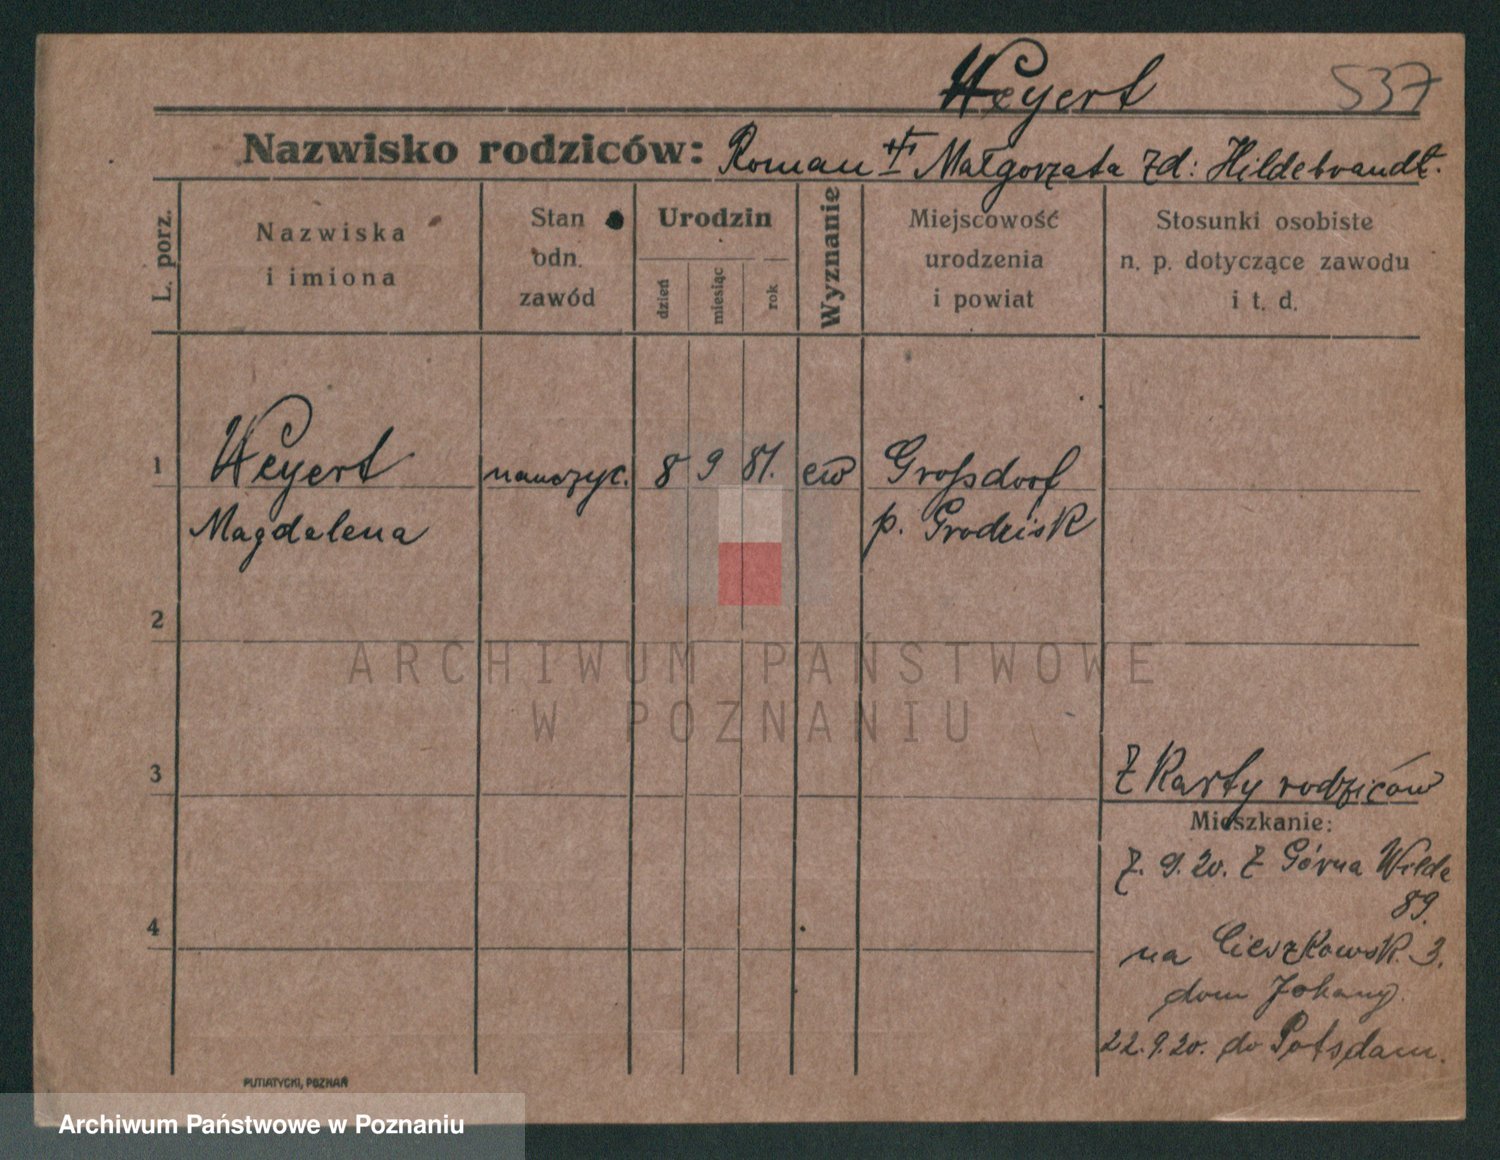 Weyert
537
Nazwisko rodziców: Roman Małgorzata zd: Hildebrandt.
L. porz.
Nazwiska
i imiona
Stan
odn.
zawód
Urodzin
dzień
miesiąc
rok
Wyznanie
Miejscowość
urodzenia
i powiat
Stosunki osobiste
n. p. dotyczące zawodu
i t. d.
1
Weyert nauczyc. 8 9 81. ew Großdorf
Magdalena p. Grodzisk
2
ARCHIWUM PAŃSTWOWE
W POZNANIU
3
Z Karty rodziców
Mieszkanie:
7. 9. 20. Z Górna Wilda
89.
4
na Cieszkowsk. 3.
dom
22.9.20. do Potsdam.
PUTIATYCKI, POZNAŃ
Archiwum Państwowe w Poznaniu